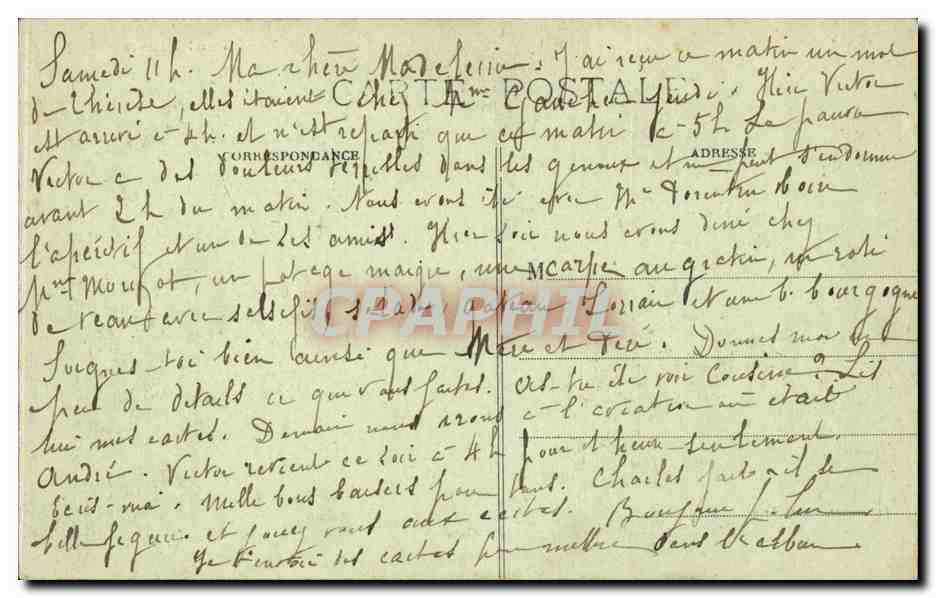 Samedi 11h. Ma chère Madeleine. J'ai reçu ce matin un mot
CARTE POSTALE
de Thérèse, elles étaient chez Mme jeudi. Hier Victor
est arrivé à 4h. et n'est reparti que ce matin à 5h Le pauvre
CORRESPONDANCE
ADRESSE
Victor a des douleurs dans les genoux et ne peut s'endormir
avant 2h du matin. Nous avons été avec Mr boire
l'apéritif et un de ses amis. Hier soir nous avons diné chez
M
Mme un potage maigre, une carpe au gratin, un roti
de veau avec salsifis, salade, gateau Lorrain et une b. bourgogne
CPAPHIL
Soignes-toi bien ainsi que Mère et Dédé. Donnes moi un
peu de détails ce que vous faites. As-tu été voir Cousine? Lis
lui mes cartes. Demain nous irons à l'
André. Victor revient ce soir à 4h pour 1 heure seulement.
Ecris-moi. Mille bons baisers pour tous. Charles fait-il sa
belle et jouez vous aux cartes. Bonjour
Je t'envoie des cartes pour mettre dans l'album